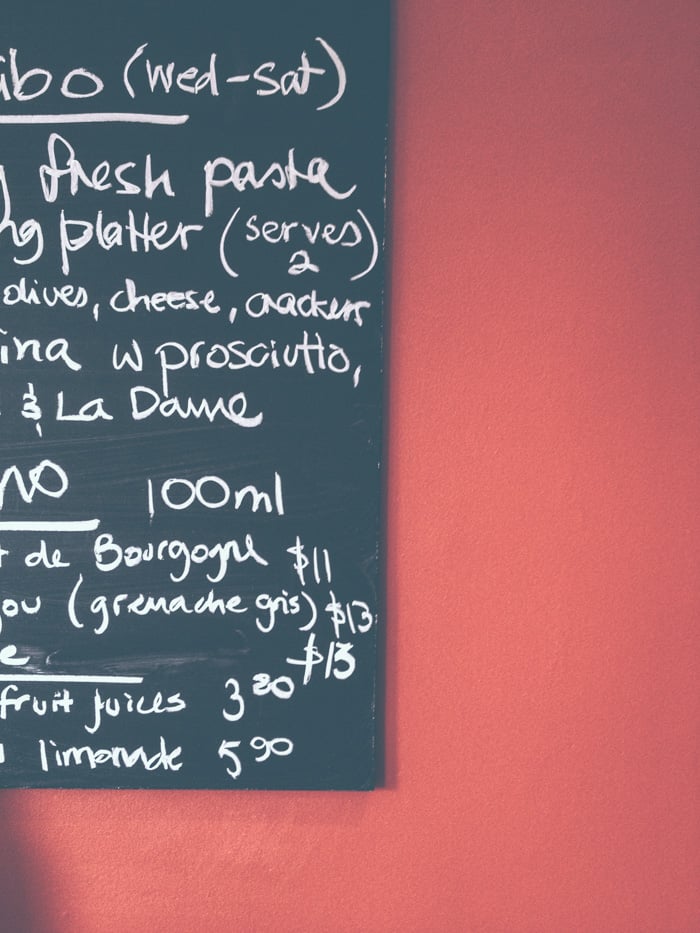 ibo (wed-sat)
g fresh pasta
ng platter (serves 2)
olives, cheese, crackers
ina w prosciutto,
& La Dame
no 100ml
t de Bourgogne $11
ou (grenache gris) $13
e $13
fruit juices 3 80
limonade 5 90